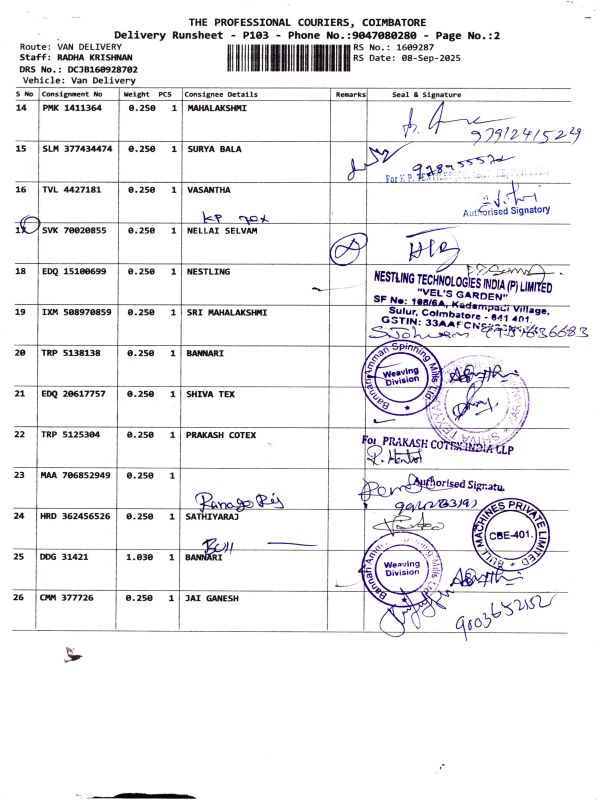 THE PROFESSIONAL COURIERS, COIMBATORE
Delivery Runsheet - P103 - Phone No.:9047080280 - Page No.:2
Route: VAN DELIVERY
RS No.: 1609287
Staff: RADHA KRISHNAN
RS Date: 08-Sep-2025
DRS No.: DCJB160928702
Vehicle: Van Delivery
S No Consignment No Weight PCS Consignee Details Remarks Seal & Signature
14 PMK 1411364 0.250 1 MAHALAKSHMI
15 SLM 377434474 0.250 1 SURYA BALA
16 TVL 4427181 0.250 1 VASANTHA
Authorised Signatory
KP
17 SVK 70020855 0.250 1 NELLAI SELVAM
18 EDQ 15100699 0.250 1 NESTLING
NESTLING TECHNOLOGIES INDIA (P) LIMITED
"VEL'S GARDEN"
SF No: 168/6A, Kadampadi Village,
Sulur, Coimbatore - 641 401.
GSTIN: 33AAFCN
19 IXM 508970859 0.250 1 SRI MAHALAKSHMI
20 TRP 5138138 0.250 1 BANNARI
Bannari Amman Spinning Mills Ltd
Weaving
Division
21 EDQ 20617757 0.250 1 SHIVA TEX
SHIVA TEXYARN
22 TRP 5125304 0.250 1 PRAKASH COTEX
For PRAKASH COTEX INDIA LLP
23 MAA 706852949 0.250 1
Authorised Signatu
24 HRD 362456526 0.250 1 SATHIYARAJ
BULL MACHINES PRIVATE LIMITED
CBE-401.
Bull
25 DDG 31421 1.030 1 BANNARI
Weaving
Division
26 CMM 377726 0.250 1 JAI GANESH
9003652152